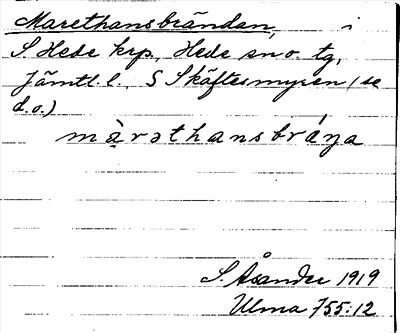 Marethansbrändan, i
S. Hede krp., Hede sn o. tg,
Jämtl. l., S Skäftesmyren (se
d.o.)
màrəthansbráŋa
S. Åsander 1919
Ulma 755:12